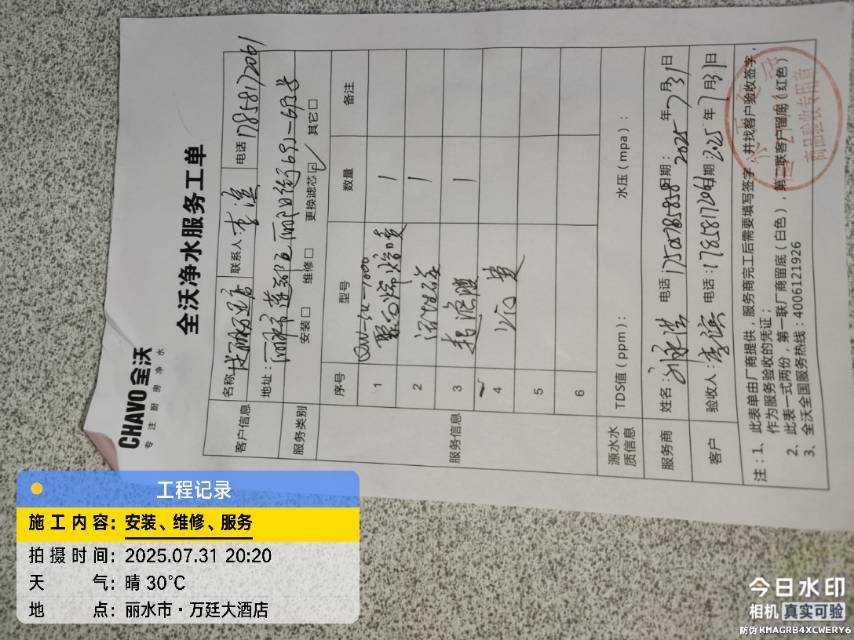 CHAVO 全沃
专注厨房净水
全沃净水服务工单
客户信息 名称 联系人 李滨 电话 17858172061
地址: 丽水市莲都区丽阳街691-693号
服务类别 安装□ 维修□ 更换滤芯☑ 其它□
服务信息 序号 型号 数量 备注
1 1
2 1
3 超滤膜 1
4
5
6
源水水质信息 TDS值(ppm): 水压(mpa):
服务商 姓名: 电话 日期: 2025年7月31日
客户 验收人: 李滨 电话: 17858172061 日期 2025年7月31日
注: 1、此表单由厂商提供,服务商完工后需要填写签字,并找客户验收签字,
作为服务验收的凭证;
2、此表一式两份,第一联厂商留底(白色),第二联客户留底(红色)
3、全沃全国服务热线:4006121926
商品验收专用章
工程记录
施工内容: 安装、维修、服务
拍摄时间: 2025.07.31 20:20
天气: 晴 30℃
地点: 丽水市·万廷大酒店
今日水印
相机 真实可验
防伪 KMAGRB4XCWERY6